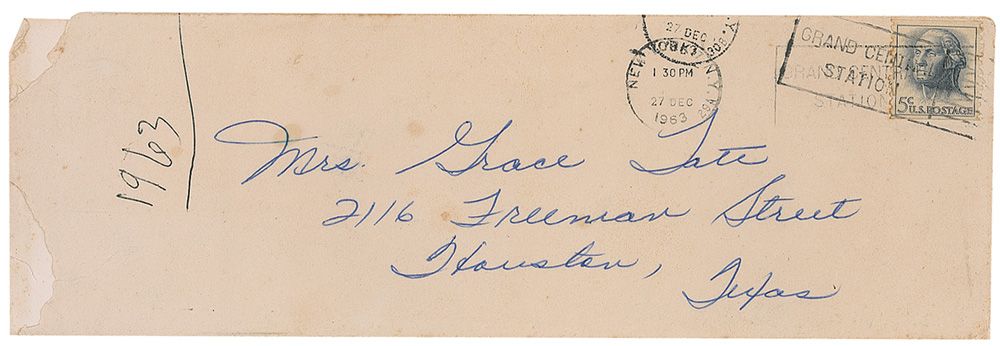 27 DEC
NEW YORK, N.Y.
1 30 PM
27 DEC
1963
GRAND CENTRAL
STATION
GRAND CENTRAL
STATION
5¢
U.S. POSTAGE
1963
Mrs. Grace Tate
2116 Freeman Street
Houston, Texas